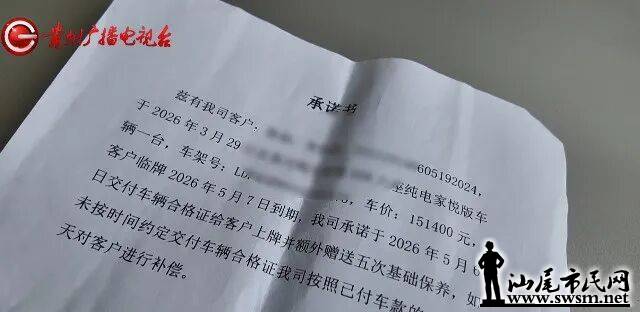 贵州广播电视台
承诺书
兹有我司客户:
605192024,
于2026年3月29
座纯电家悦版车
辆一台,车架号:L
车价:151400元,
客户临牌2026年5月7日到期,我司承诺于2026年5月6
日交付车辆合格证给客户上牌并额外赠送五次基础保养,如
未按时间约定交付车辆合格证我司按照已付车款的
天对客户进行补偿。
汕尾市民网
www.swsm.net